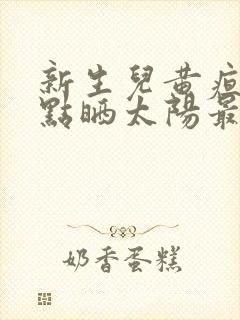 新生兒黃疸
點晒太陽最
奶香蛋糕